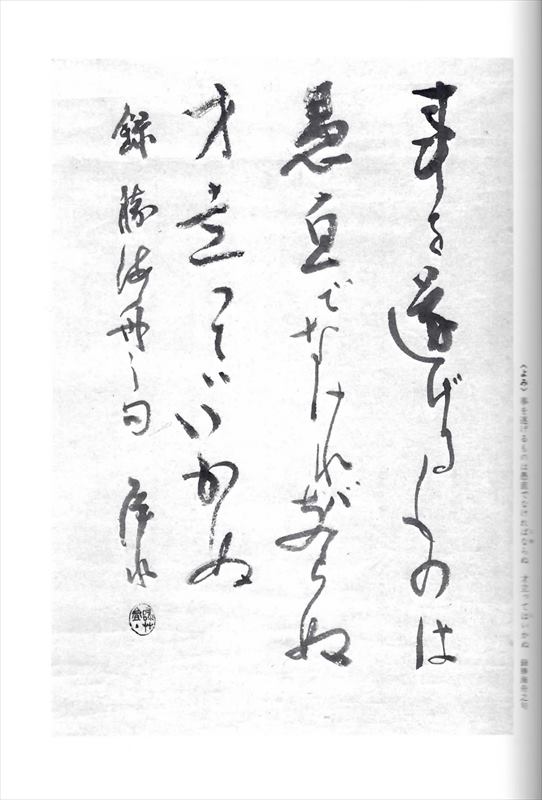 事を遂げるものは
愚直でなければならぬ
才立っていかぬ
録勝海舟之句
〈よみ〉 事を遂げるものは愚直でなければならぬ 才立ってはいかぬ 録勝海舟之句